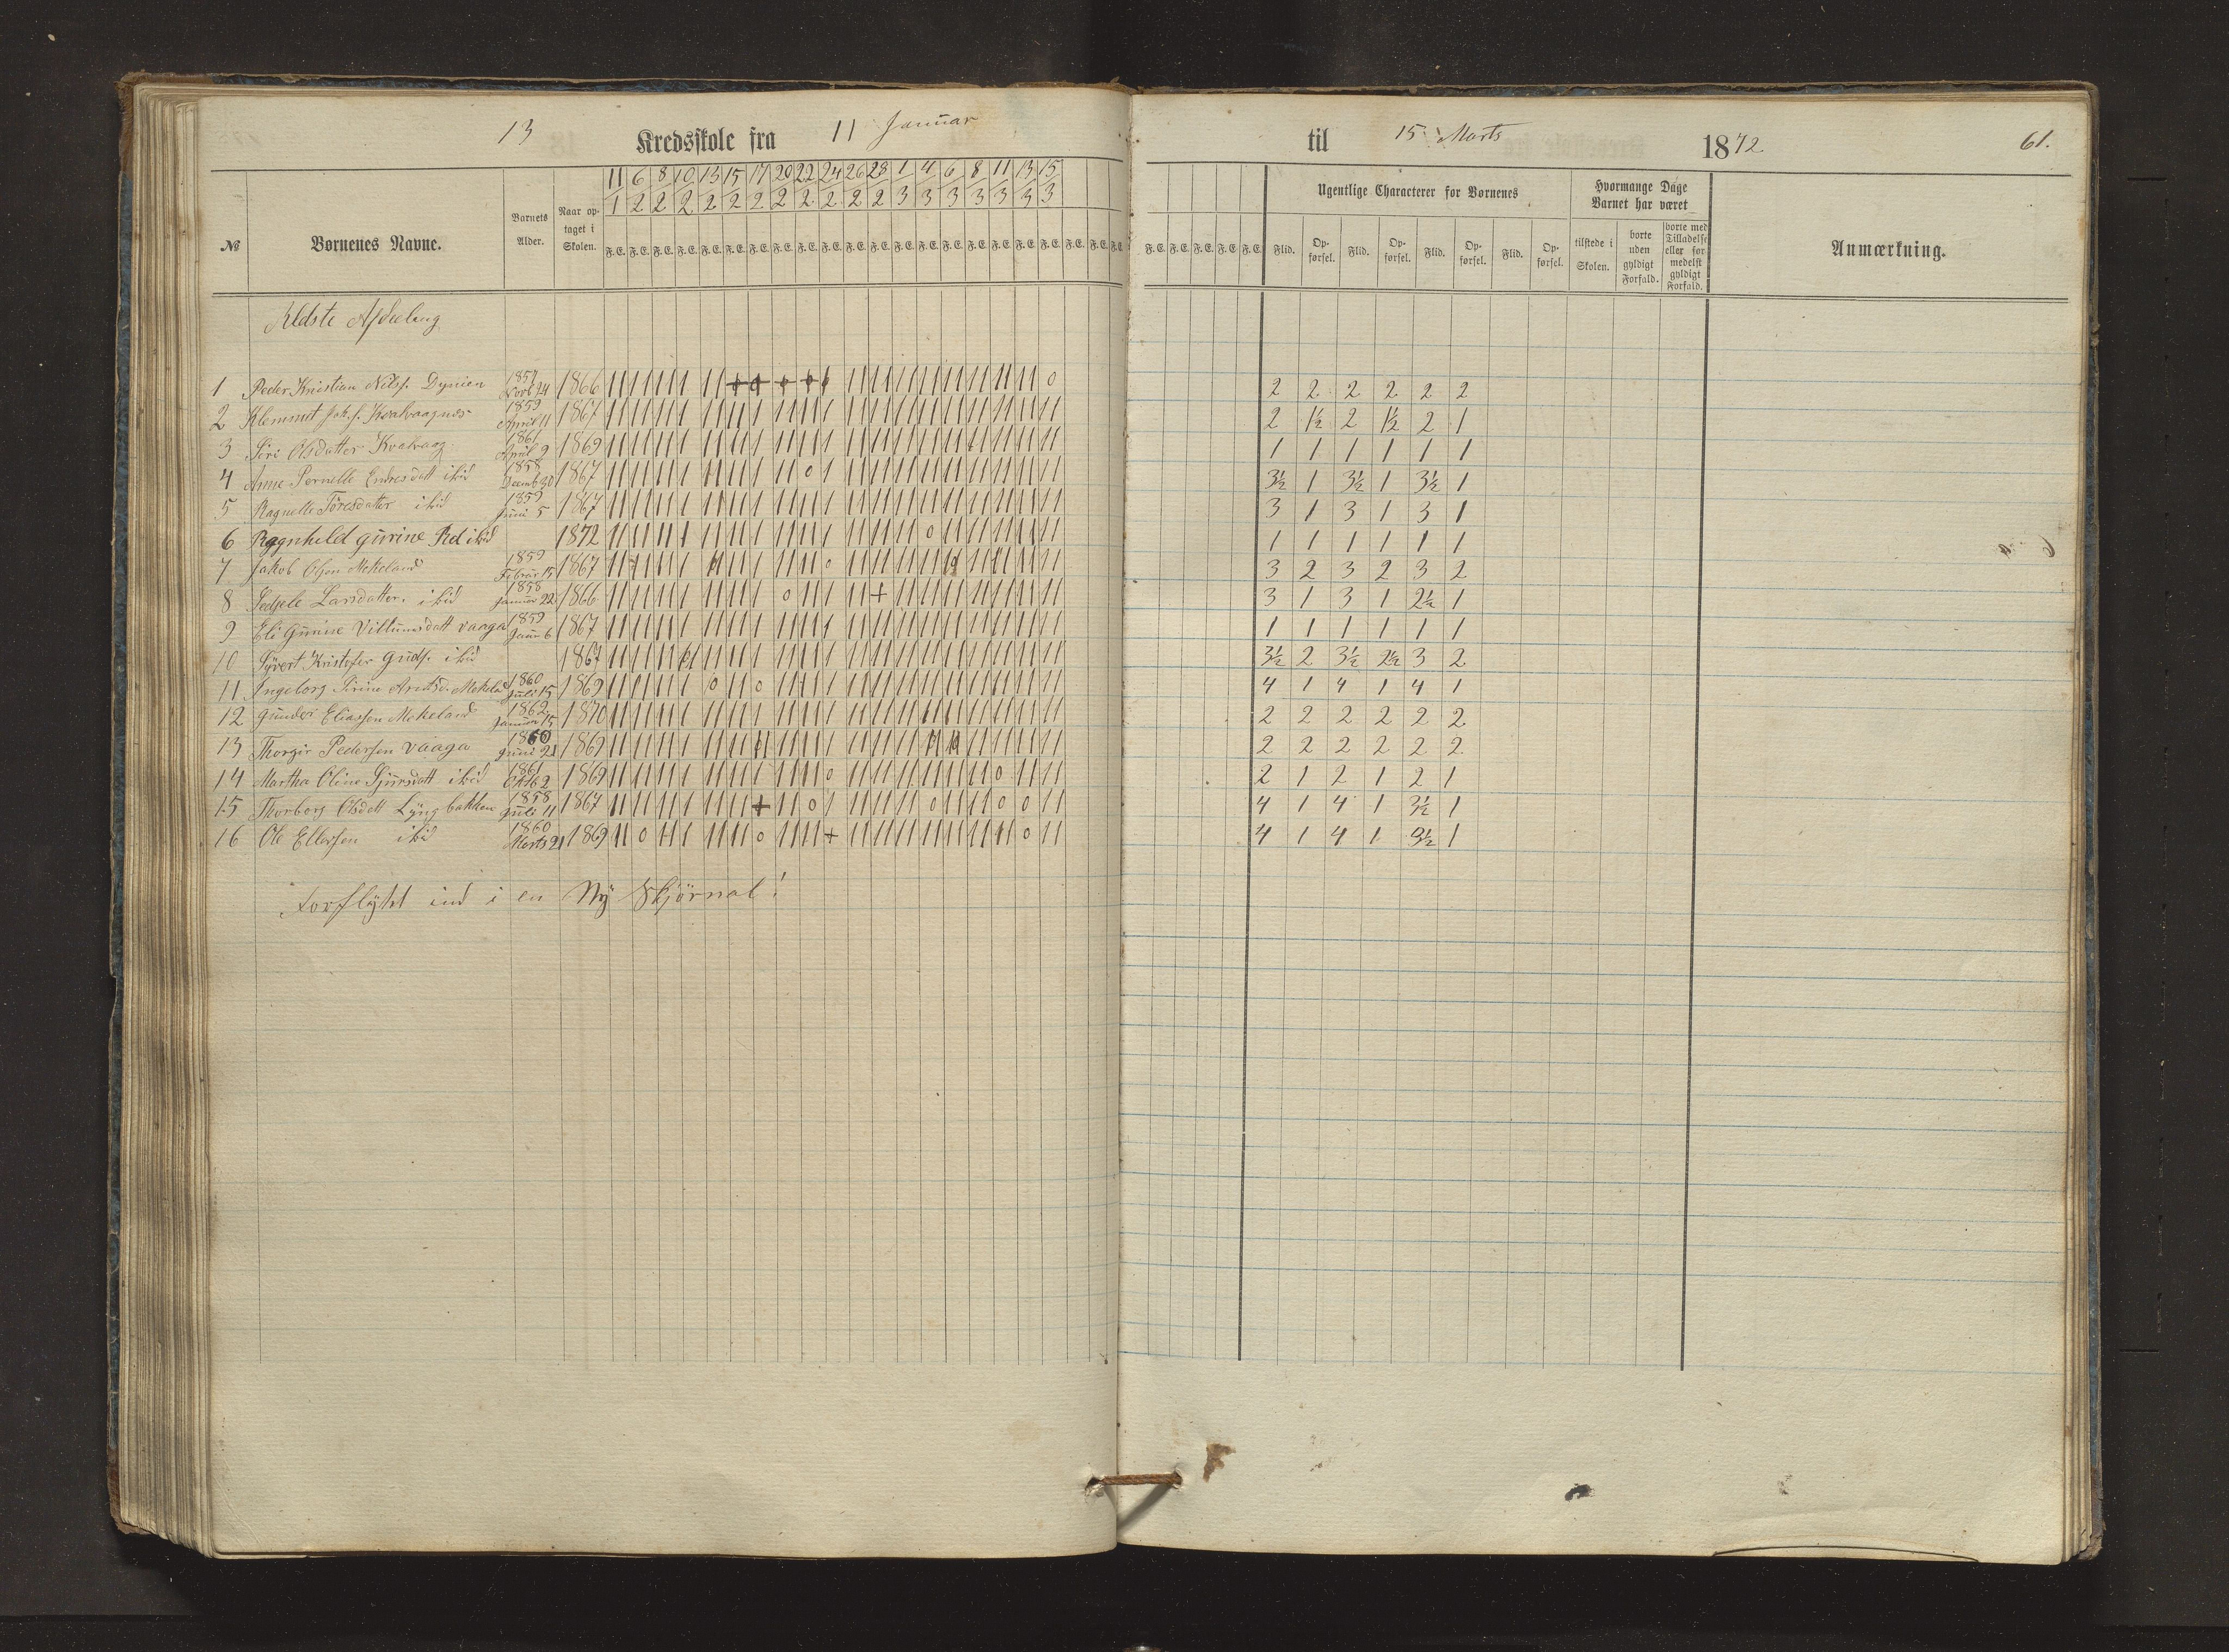 13 Kredsskole fra 11 Januar til 15 Marts 1872 61.
№ Børnenes Navne. Barnets Alder. Naar optaget i Skolen.
11/1 6/2 8/2 10/2 13/2 15/2 17/2 20/2 22/2 24/2 26/2 28/2 1/3 4/3 6/3 8/3 11/3 13/3 15/3
F. E. F. E. F. E. F. E. F. E. F. E. F. E. F. E. F. E. F. E. F. E. F. E. F. E. F. E. F. E. F. E. F. E. F. E. F. E. F. E. F. E. F. E.
F. E. F. E. F. E. F. E. F. E.
Ugentlige Characterer for Børnenes
Flid. Opførsel. Flid. Opførsel. Flid. Opførsel. Flid. Opførsel.
Hvormange Dage Barnet har været
tilstede i Skolen. borte uden gyldigt Forfald. borte med Tilladelse eller formedelst gyldigt Forfald.
Anmærkning.
Ældste Afdeling
1 Peder Kristian Nilss. Novb 24 1866 2 2 2 2 2 2
2 Klemmet Joh. s. Kvalvaagnes 1859 April 11 1867 2 1½ 2 1½ 2 1
3 Siri Olsdatter Kvalvaag 1861 April 9 1869 1 1 1 1 1 1
4 Anne Pernelle Endresdatt ibid 1858 Decemb 30 1867 3½ 1 3½ 1 3½ 1
5 Ragnelle Töresdatter ibid 1859 Juni 5 1867 3 1 3 1 3 1
6 Ragnheld Gurine Ped ibid 1872 1 1 1 1 1 1
7 Jakob Olsen Mekeland 1859 Februar 15 1867 3 2 3 2 3 2
8 Larsdatter. ibid 1858 Januar 22 1866 3 1 3 1 2½ 1
9 Eli Gurine Villumsdatt Vaaga 1859 Janu 6 1867 1 1 1 1 1 1
10 Syvert Kristofer Guds. ibid 1867 3½ 2 3½ 2½ 3 2
11 Ingeborg Sirine 1860 Juli 15 1869 4 1 4 1 4 1
12 Gunder Eliassen Mekeland 1862 Januar 15 1870 2 2 2 2 2 2
13 Thorgir Pedersen Vaaga 1860 Juni 21 1869 2 2 2 2 2 2
14 Martha Oline Sjursdatt ibid 1861 Oktb 2 1869 2 1 2 1 2 1
15 Thorborg Olsdatt Lyngbakken 1858 Juli 11 1867 4 1 4 1 3½ 1
16 Ole Ellefsen ibid 1860 Marts 21 1869 4 1 4 1 3½ 1
Forflytet ind i en Ny Skjörnal!